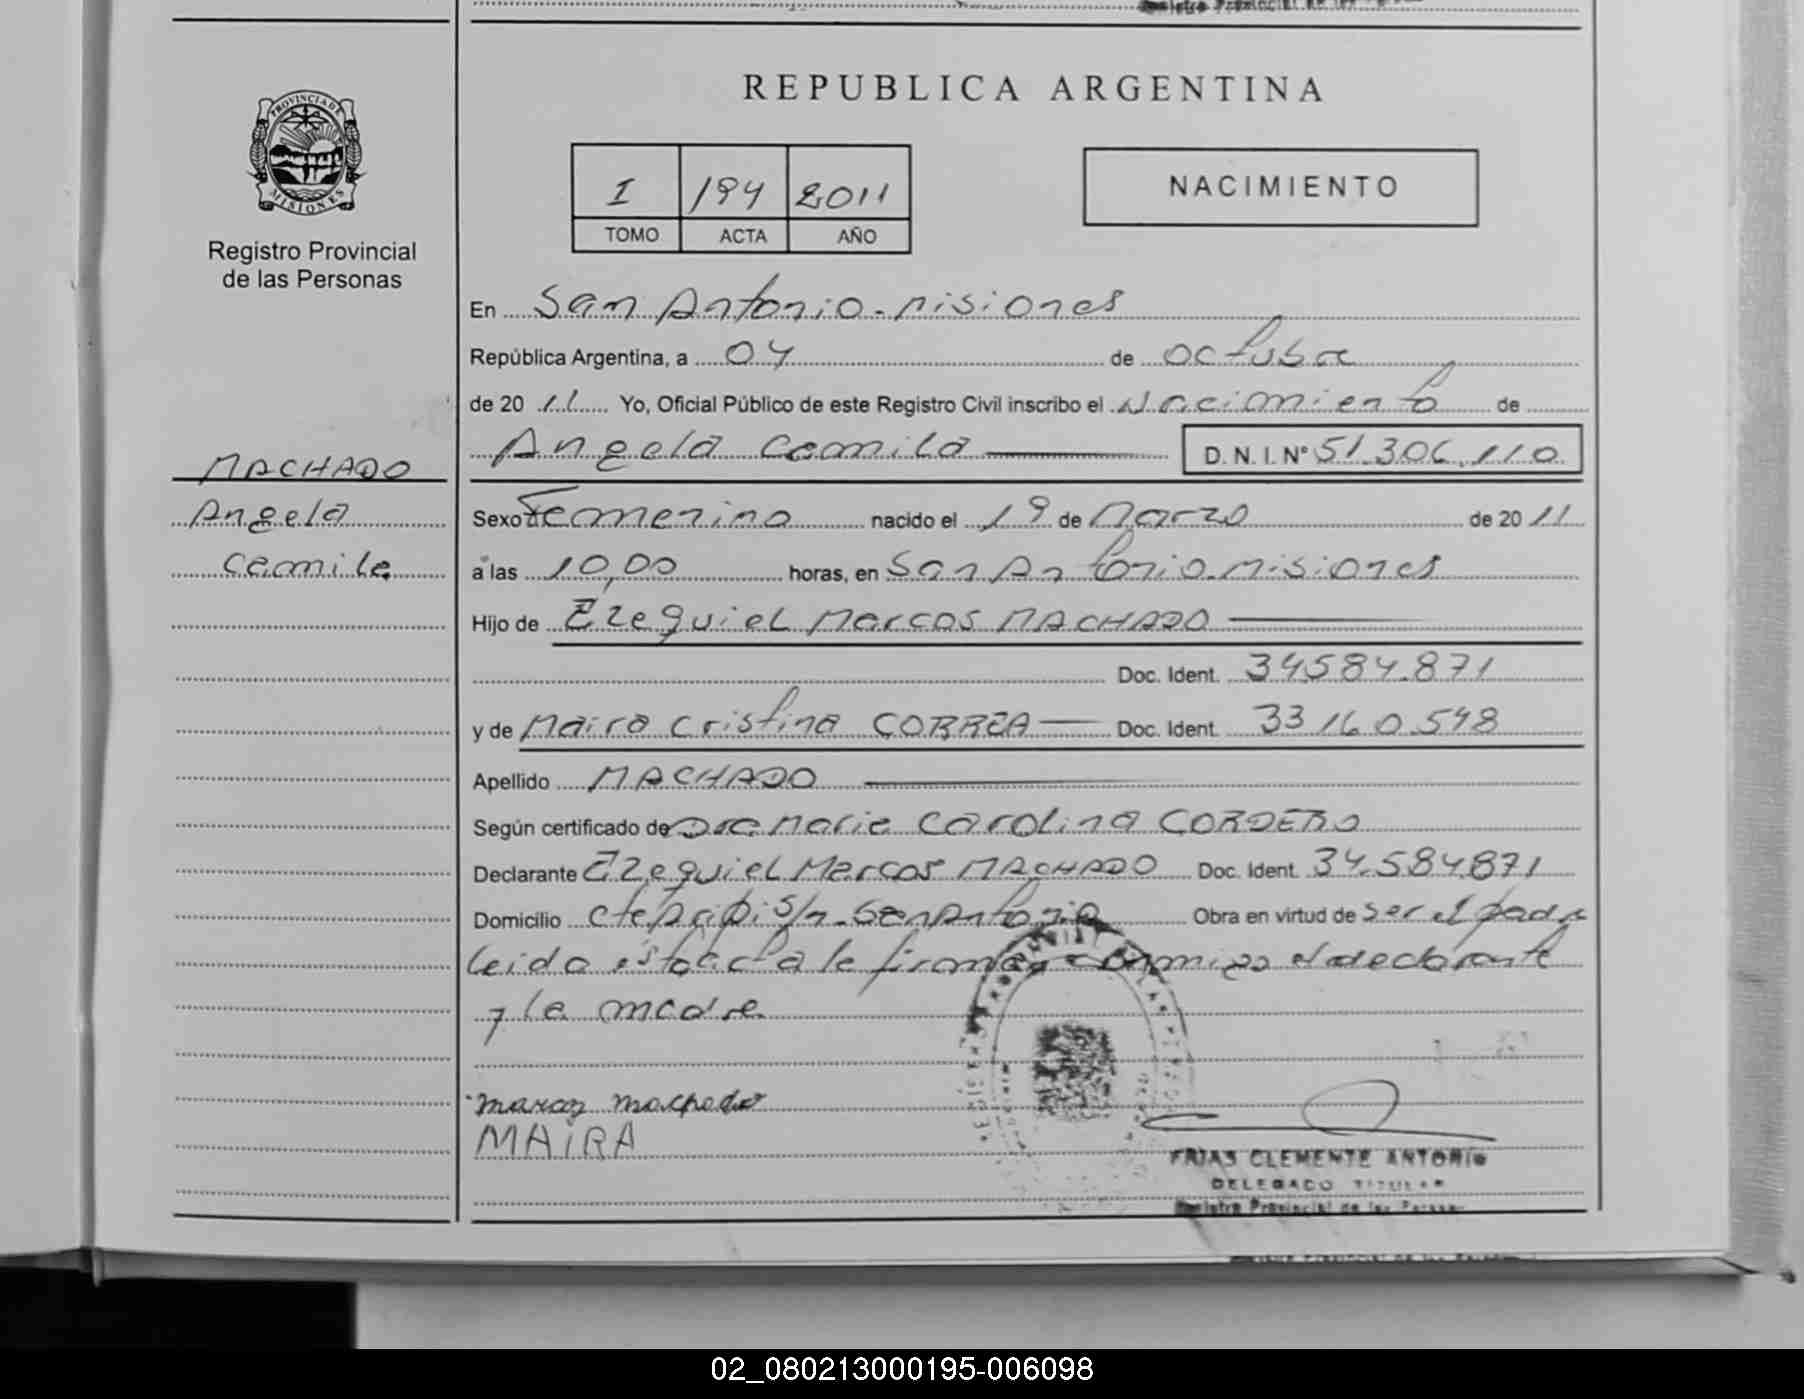 REPUBLICA ARGENTINA
PROVINCIA DE
MISIONES
Registro Provincial
de las Personas
I 194 2011
TOMO ACTA AÑO
NACIMIENTO
En San Antonio - Misiones
República Argentina, a 04 de octubre
de 20 11 Yo, Oficial Público de este Registro Civil inscribo el Nacimiento de
Angela Camila D. N. I. Nº 51.306.110
MACHADO
Angela
Camila
Sexo Femenino nacido el 19 de Marzo de 20 11
a las 10,00 horas, en San Antonio - Misiones
Hijo de Ezequiel Marcos MACHADO
Doc. Ident. 34584.871
y de Maira Cristina CORREA Doc. Ident. 33160.548
Apellido MACHADO
Según certificado de Dra Maria Carolina CORDERO
Declarante Ezequiel Marcos MACHADO Doc. Ident. 34.584.871
Domicilio s/n - San Antonio Obra en virtud de ser el padre
Leida esta acta la firman conmigo el declarante
y la madre
marcos machado
MAiRA
FRIAS CLEMENTE ANTONIO
DELEGADO TITULAR
Registro Provincial de las Personas
02_080213000195-006098